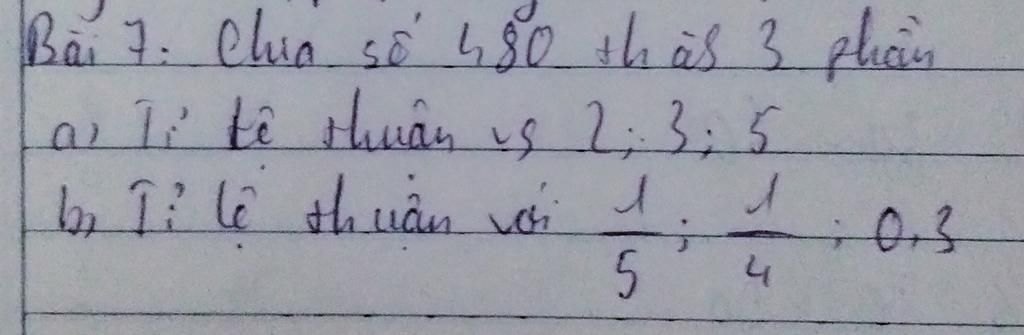 Bài 7: Chia số 480 thàs 3 phần
a) Tỉ lệ thuận vs 2; 3; 5
b) Tỉ lệ thuận với 1/5; 1/4; 0,3